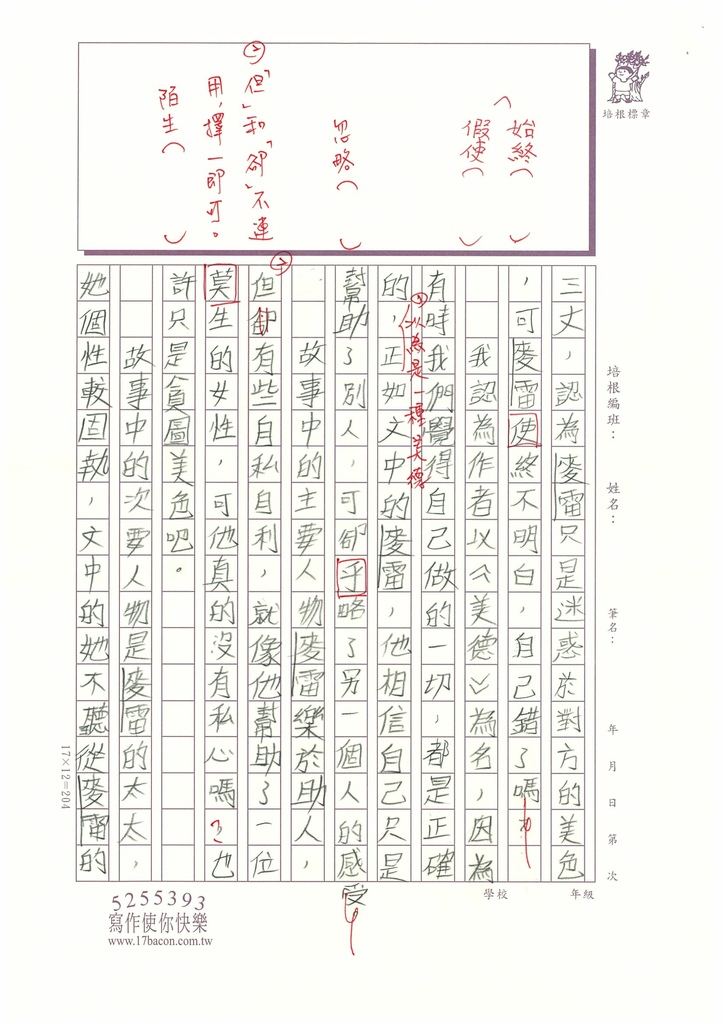 培根標章
︵始終︵ ︶
假使︵ ︶
忽略︵ ︶
②「但」和「卻」不連
用，擇一即可。
陌生︵ ︶
培根編班： 姓名： 筆名： 年 月 日 第 次
三丈，認為麥雷只是迷惑於對方的美色
，可麥雷使終不明白，自己錯了嗎？
我認為作者以《美德》為名，因為
有時我們覺得自己做的一切，都是正確
①以為是一種美德
的，正如文中的麥雷，他相信自己只是
幫助了別人，可卻乎略了另一個人的感受
故事中的主要人物麥雷樂於助人，
②
但卻有些自私自利，就像他幫助了一位
莫生的女性，可他真的沒有私心嗎？也
許只是貪圖美色吧。
故事中的次要人物是麥雷的太太，
她個性較固執，文中的她不聽從麥雷的
17×12=204
學校 年級
5255393
寫作使你快樂
www.17bacon.com.tw